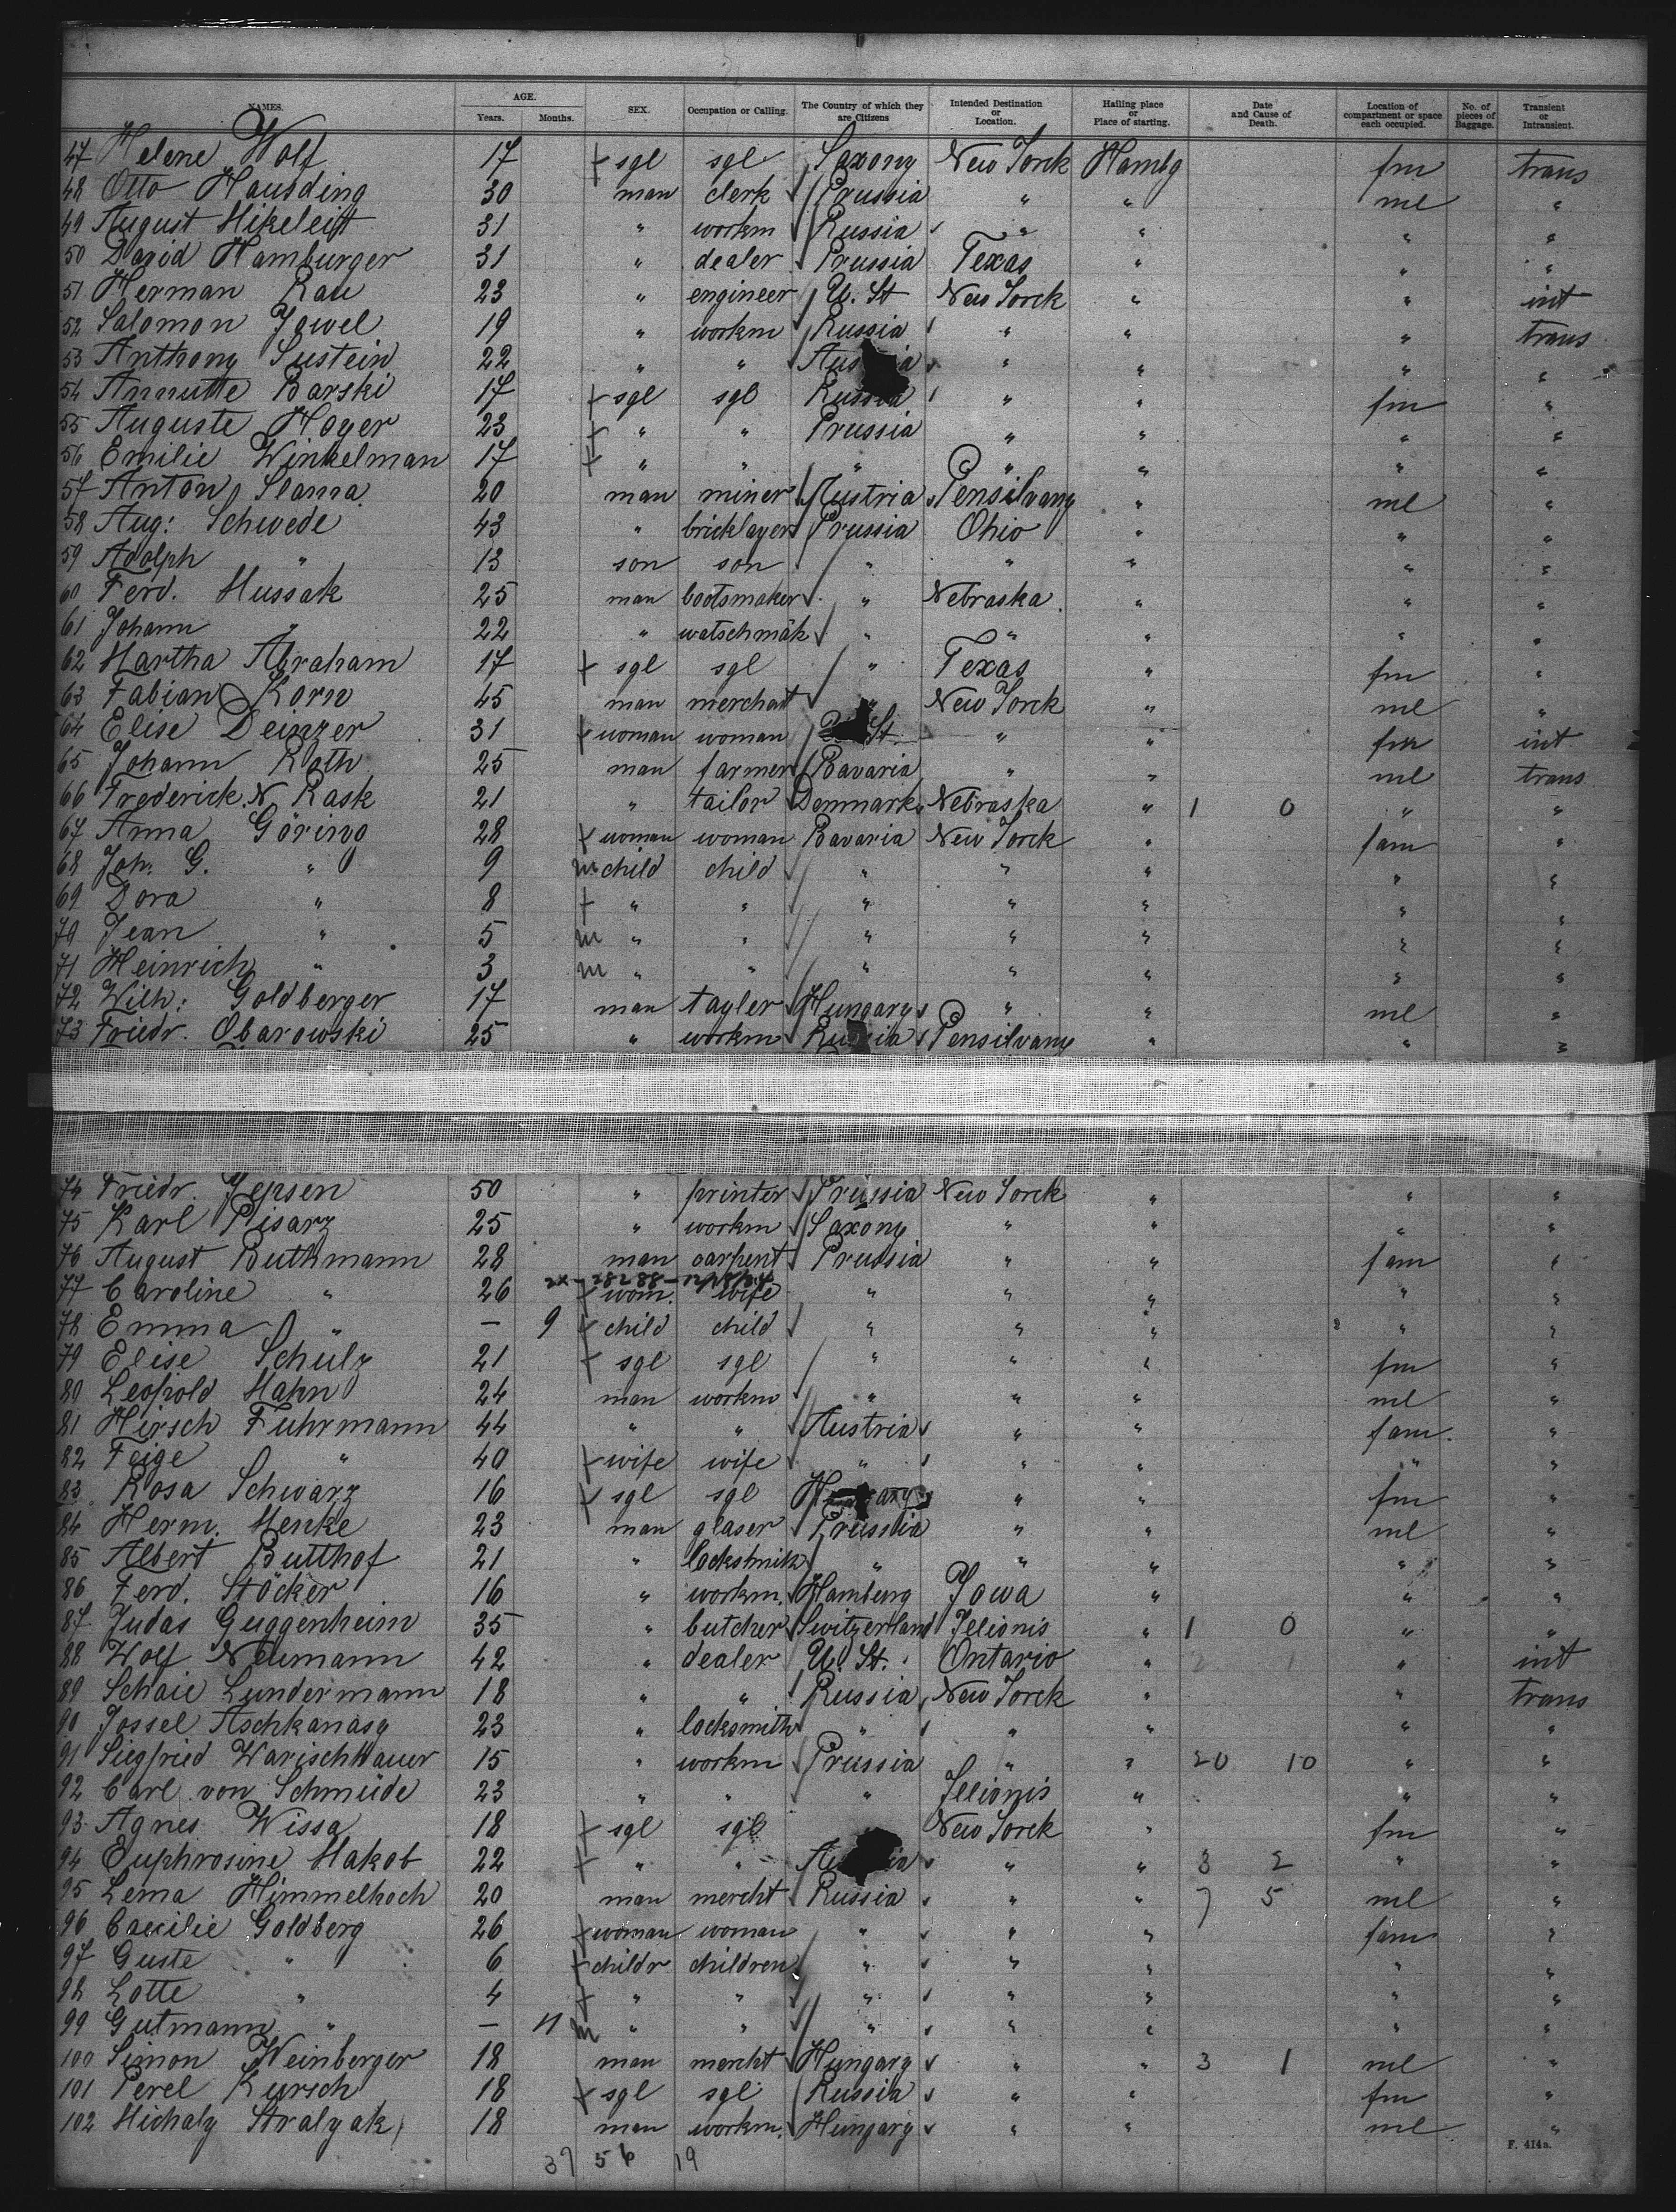 NAMES. AGE. Years. Months. SEX. Occupation or Calling. The Country of which they are Citizens Intended Destination or Location. Hailing place or Place of starting. Date and Cause of Death. Location of compartment or space each occupied. No. of pieces of Baggage. Transient or Intransient.
47 Helene Wolf 17 + sgl sgl Saxony New Yorck Hambg fm trans
48 Otto Hausding 30 man clerk Prussia " " ml "
49 August Mikeleist 31 " workm Russia " " " "
50 David Hamburger 31 " dealer Prussia Texas " " "
51 Herman Rau 23 " engineer U. St New Yorck " " int
52 Salomon Jowel 19 " workm Russia " " " trans
53 Anthony Sustein 22 " " Aus ia " " " "
54 Annutte Barski 17 + sgl sgl Russia " " fm "
55 Auguste Hoyer 23 + " " Prussia " " " "
56 Emilie Winkelman 17 + " " " " " " "
57 Anton Slama 20 man miner Austria Pensilvany " ml "
58 Aug: Schwede 43 " bricklayer Prussia Ohio " " "
59 Adolph " 13 son son " " " " "
60 Ferd. Hussak 25 man bootsmaker " Nebraska " " "
61 Johann " 22 " watschmak " " " " "
62 Martha Abraham 17 + sgl sgl " Texas " fm "
63 Fabian Korn 45 man merchant " New Yorck " ml "
64 Elise Deinzer 31 + woman woman St " " fm int
65 Johann Roth 25 man farmer Bavaria " " ml trans
66 Frederick. N Rask 21 " tailor Denmark Nebraska " 1 0 " "
67 Anna Göring 28 + woman woman Bavaria New Yorck " fam "
68 Joh. G. " 9 m child child " " " " "
69 Dora " 8 + " " " " " " "
70 Jean " 5 m " " " " " " "
71 Heinrich " 3 m " " " " " " "
72 Wilh: Goldberger 17 man tayler Hungary " " ml "
73 Friedr. Obarowski 25 " workm Russia Pensilvany " " "
74 Friedr. Jepsen 50 " printer Prussia New Yorck " " "
75 Karl Pisarz 25 " workm Saxony " " " "
76 August Buthmann 28 man carpent Prussia " " fam "
77 Caroline " 26 + wom. wife " " " " "
78 Emma " — 9 + child child " " " " "
79 Elise Schulz 21 + sgl sgl " " " fm "
80 Leopold Hahn 24 man workm " " " ml "
81 Hirsch Fuhrmann 44 " " Austria " " fam. "
82 Feige " 40 + wife wife " " " " "
83 Rosa Schwarz 16 + sgl sgl H gary " " fm "
84 Herm. Menke 23 man glaser Prussia " " ml "
85 Albert Butthof 21 " locksmith " " " " "
86 Ferd. Stöcker 16 " workm. Hamburg Jowa " " "
87 Judas Guggenheim 35 " butcher Switzerland Jelionis " 1 0 " "
88 Wolf Neumann 42 " dealer U. St. Ontario " 2 1 " int
89 Schaie Lundermann 18 " " Russia New Yorck " " trans
90 Jossel Aschkanasy 23 " locksmith " " " " "
91 Siegfried Warischhauer 15 " workm Prussia " " 20 10 " "
92 Carl von Schmüde 23 " " " Jelionis " " "
93 Agnes Wissa 18 + sgl sgl New Yorck " fm "
94 Euphrosine Hakob 22 + " " Au ia " " 3 2 " "
95 Lema Himmelhoch 20 man mercht Russia " " 7 5 ml "
96 Caecilie Goldberg 26 + woman woman " " " fam "
97 Guste " 6 + childr children " " " " "
98 Lotte " 4 + " " " " " " "
99 Gutmann " — 11 m " " " " " " "
100 Simon Weinberger 18 man mercht Hungary " " 3 1 ml "
101 Perel Kursch 18 + sgl sgl Russia " " fm "
102 Michaly Stralyak 18 man workm. Hungary " " ml "
37 56 19
F. 414a.